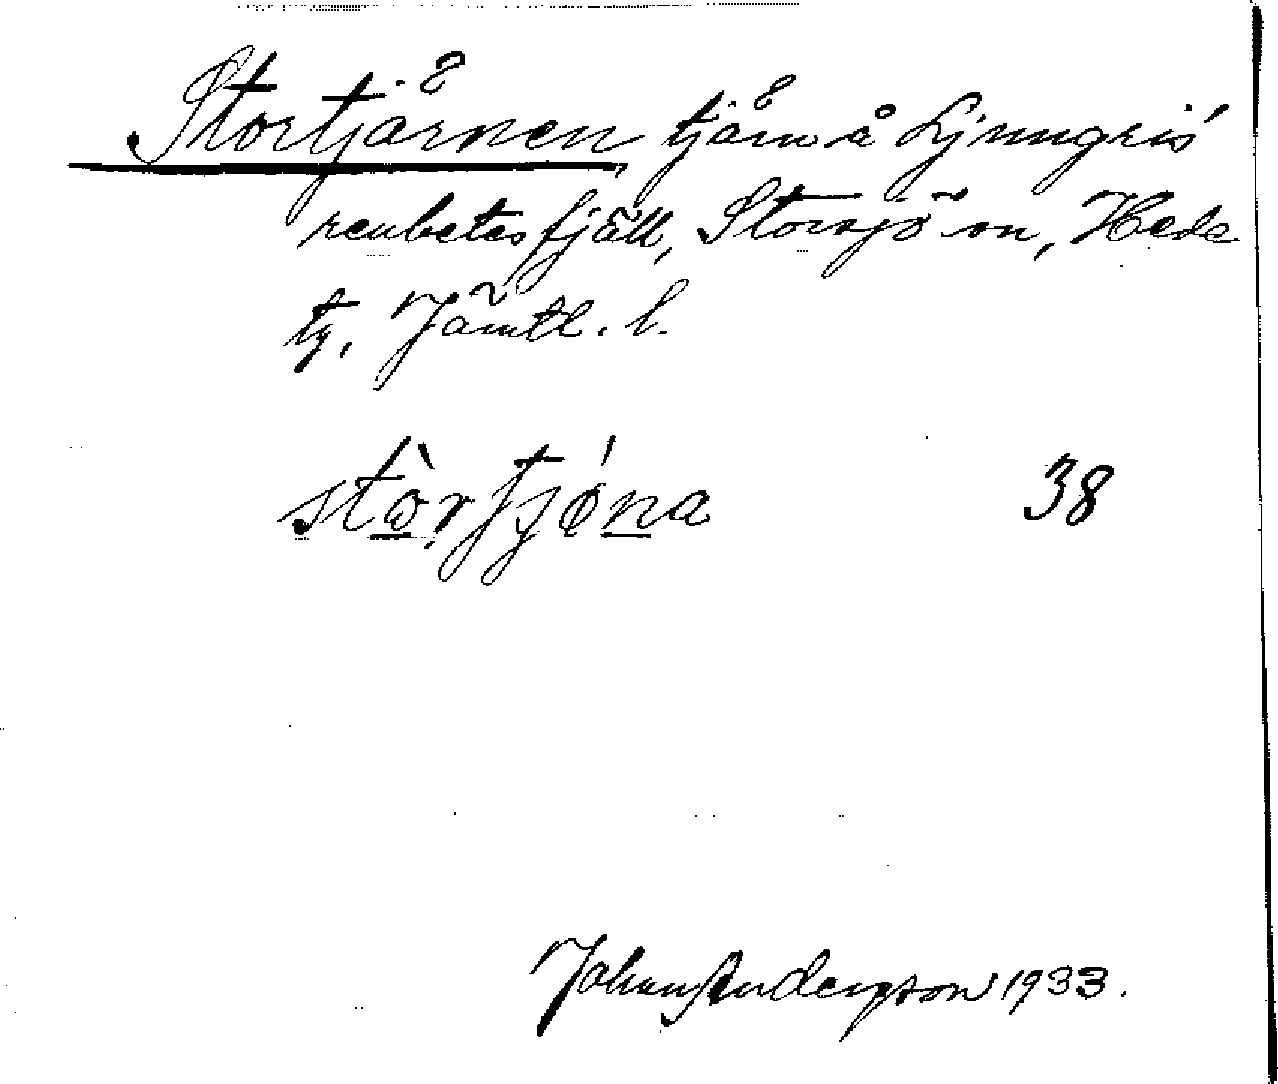 Stortjårnen tjårn å Ljungris
renbetesfjäll, Storsjö sn, Hede
tg, Jämtl. l.
stòrtjǿna 38
Johan Anderzson 1933.